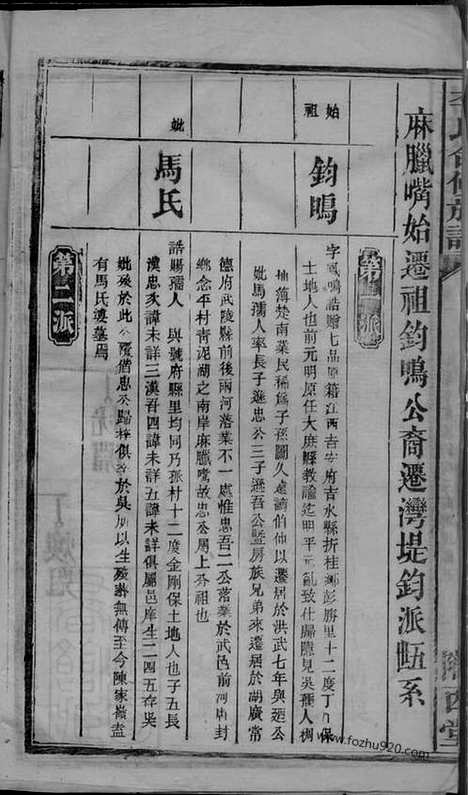 李氏合修族譜
麻臘嘴始遷祖鈞鳴公裔遷灣堤鈞派㽏系
第一派
始祖
鈞鳴
字鳳鳴誥贈七品原籍江西吉安府吉水縣折桂鄉彭勝里十二度丁八保
土地人也前元明原任大庾縣教諭迄明平元亂致仕歸隱見吳攜人稠
地薄楚南業民稀爲子孫圖久遠請伯仲以遷居於洪武七年與廷公
妣馬孺人率長子遜忠公三子遜吾公暨房族兄弟來遷居於胡廣常
德府武陵縣前後兩河落業不一處惟忠吾二公落業於武邑前河南封
鄉念平村青泥湖之南岸麻臘嘴故忠公爲上分祖也
妣
馬氏
誥贈孺人 與號府縣里均同乃張村十二度金剛保土地人也子五長
漢忠次諱未詳三漢吾四諱未詳五諱未詳俱屬邑庠生二四五存吳
妣歿於此公歿偕忠公歸梓俱葬於吳所以生歿葬無傳至今陳家嶺盖
有馬氏婆墓焉
第二派
www.fozhu920.com